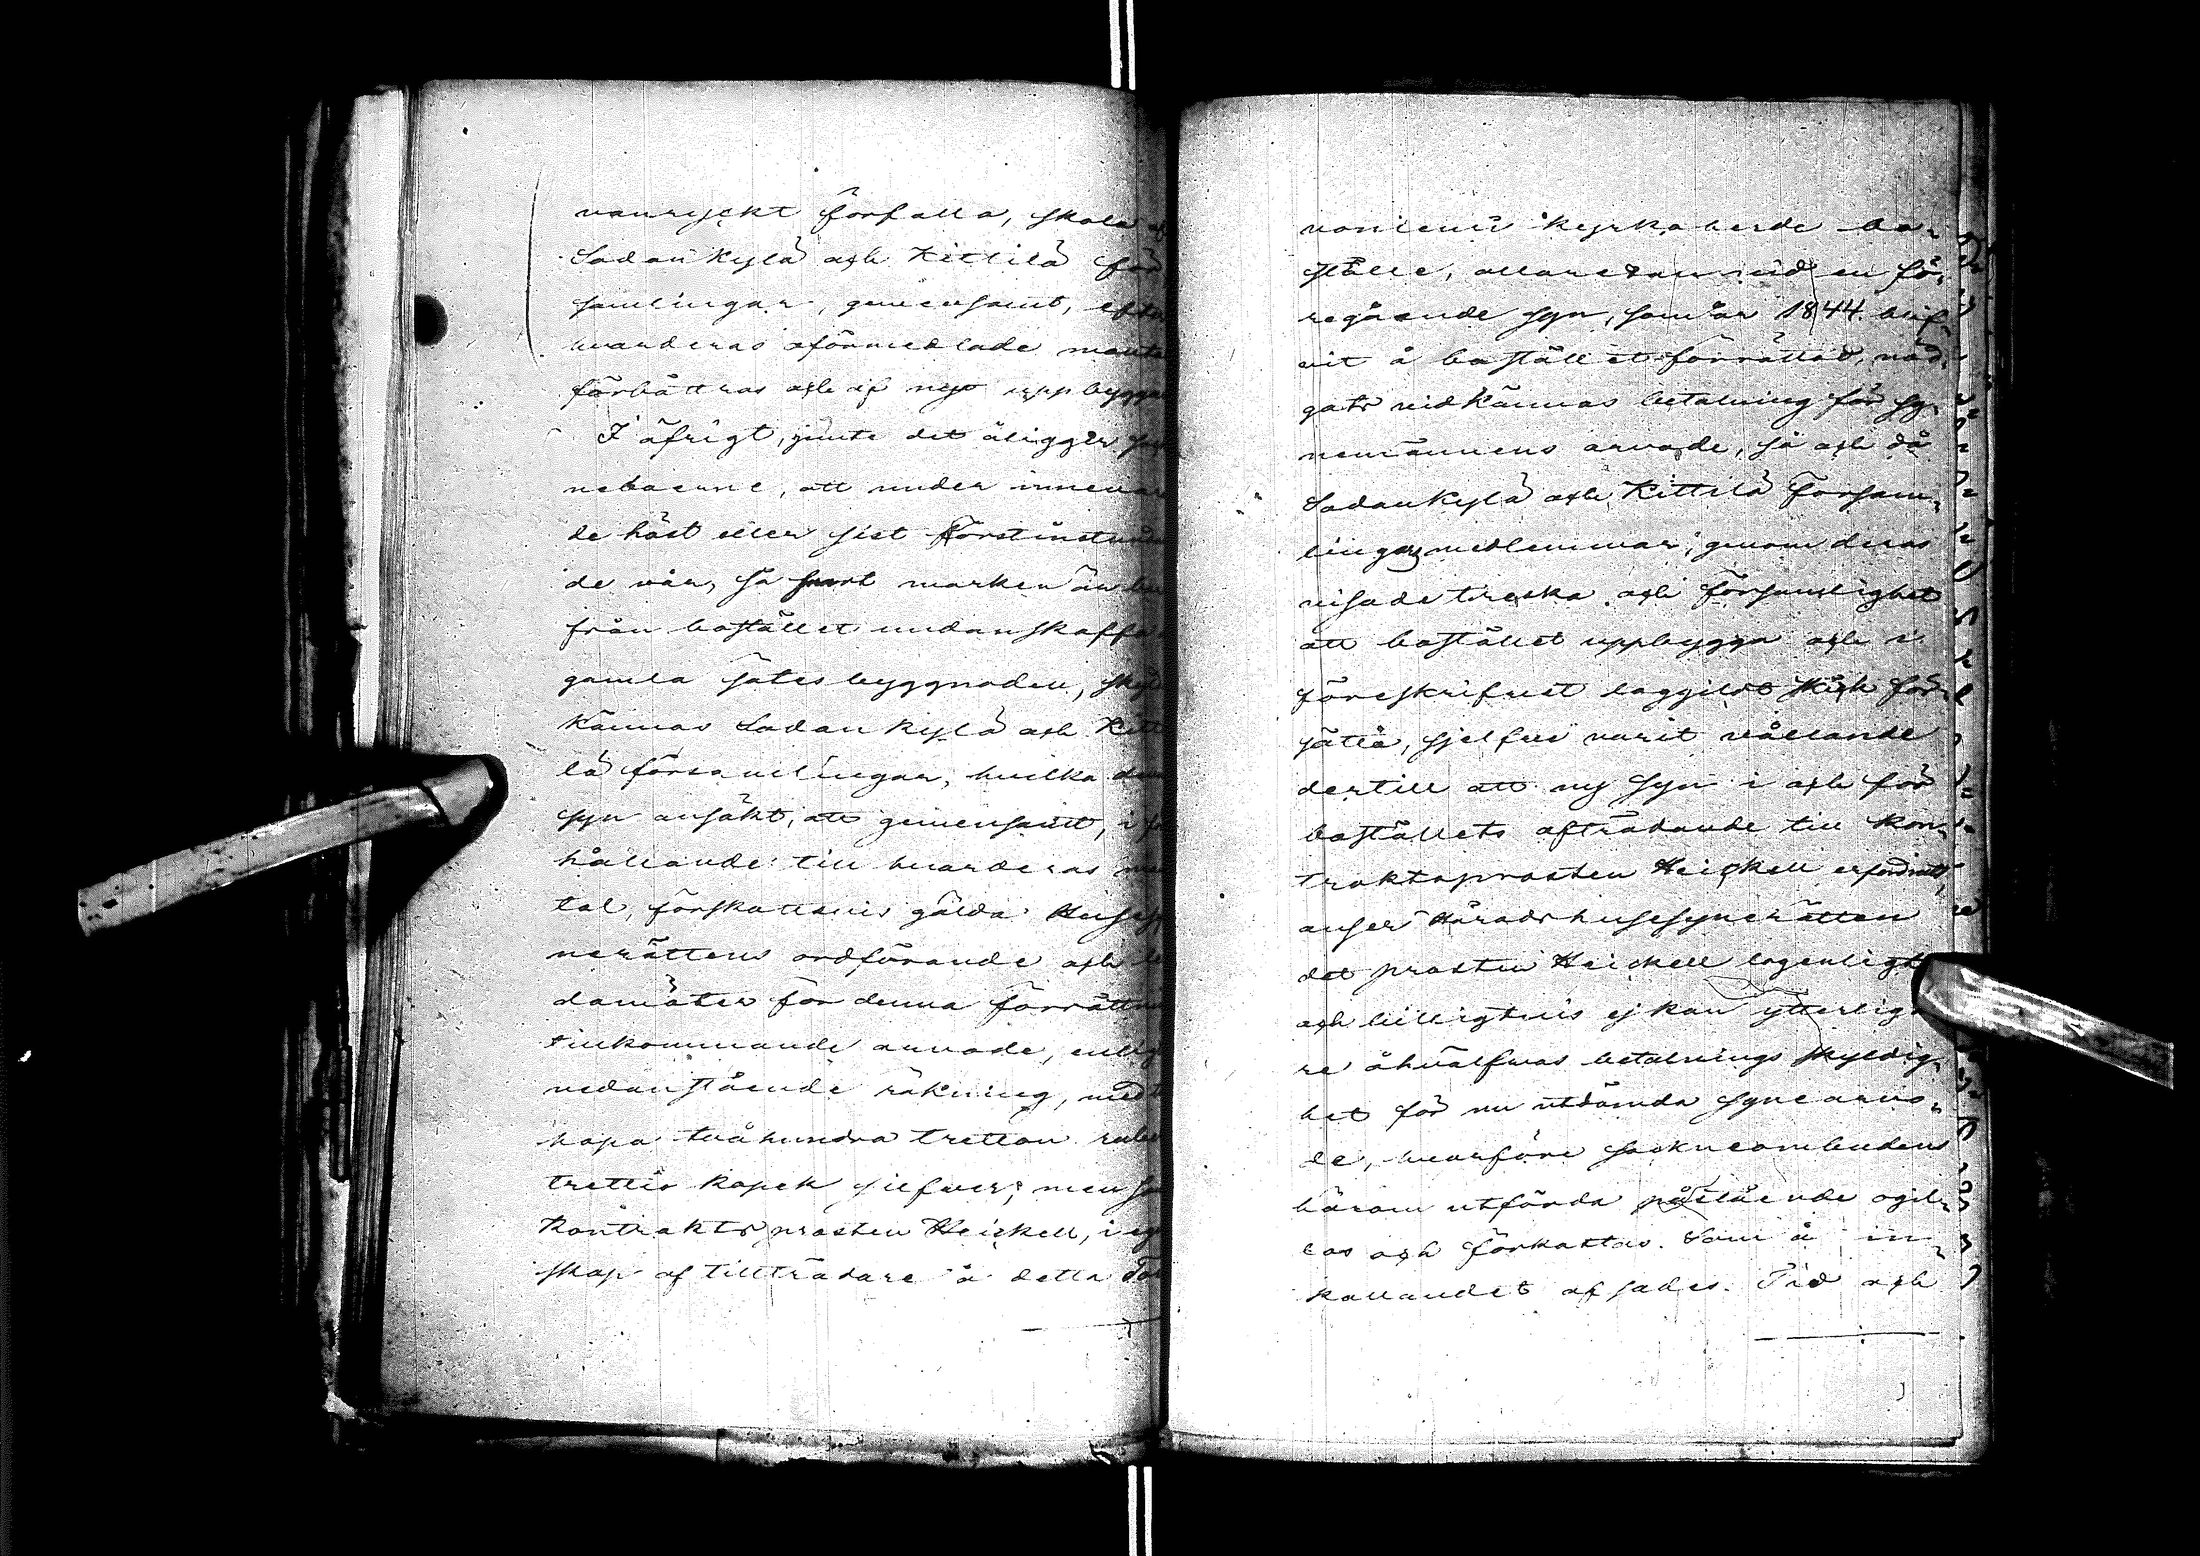 vanryckt förfalla, skola af
Sodankylä och Kittilä för
samlingar, gemensamt, efter
hvarderas oförmedlade mante
förbättras och af nyo uppbygga
I öfrigt, jemte det åligger
neboerne, att under innevaran
de höst eller sist förstinstun
de vår, så snart marken än bar
från bostället undanskaffa
gamla sätesbyggnaden, skyl
kännas Sodankylä och Kitti
lä församlingar, hvilka denna
syn ansökt, att gemensamt, i för
hållande till hvarderas man
tal, förskottsvis gälda Husesy
nerättens ordförande och le
damöter för denna förrättni
tillkommande arvode, enligt
nedanstående räkning, med t
hopa tvåhundra tretton rubel
trettio kopek silfver; men som
Kontraktsprosten Heickell, i egen
skap af tillträdare å detta
vaniemi kyrkoherde bo-
ställe, allaredan vid en fö-
regående syn, som år 1844 blif-
vit å bostället förrättad, nöd-
gats vidkännas betalning för sy-
nemännens arvode, så och då
Sodankylä och Kittilä försam-
lingars medlemmar, genom deras
visade tredska och försumlighet
att bostället uppbygga och i
föreskrifvet laggildt skick för-
sätta, sjelfve varit vållande
dertill att ny syn i och för
boställets afträdande till Kon-
traktsprosten Heickell erfordrats,
anser Häradshusesynerätten
det prosten Heickell lagenligt
och billigtvis ej kan ytterliga-
re åhvälfvas betalnings skyldig-
het för nu utdömda synearvo-
de, hvarföre sockneombudens
härom utförda påstående ogil-
las och förkastas. Som å in-
kallandet afsades. Tid och